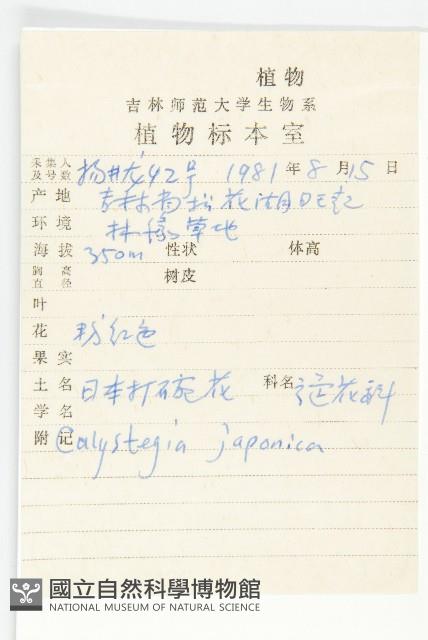 植物
吉林师范大学生物系
植物标本室
采集人及号数 杨井 42号 1981年8月15日
产地 吉林市松花湖
环境 林缘草地
海拔 350m 性状 体高
胸高直径 树皮
叶
花 粉红色
果实
土名 日本打碗花 科名 旋花科
学名
附记 Calystegia japonica
國立自然科學博物館
NATIONAL MUSEUM OF NATURAL SCIENCE